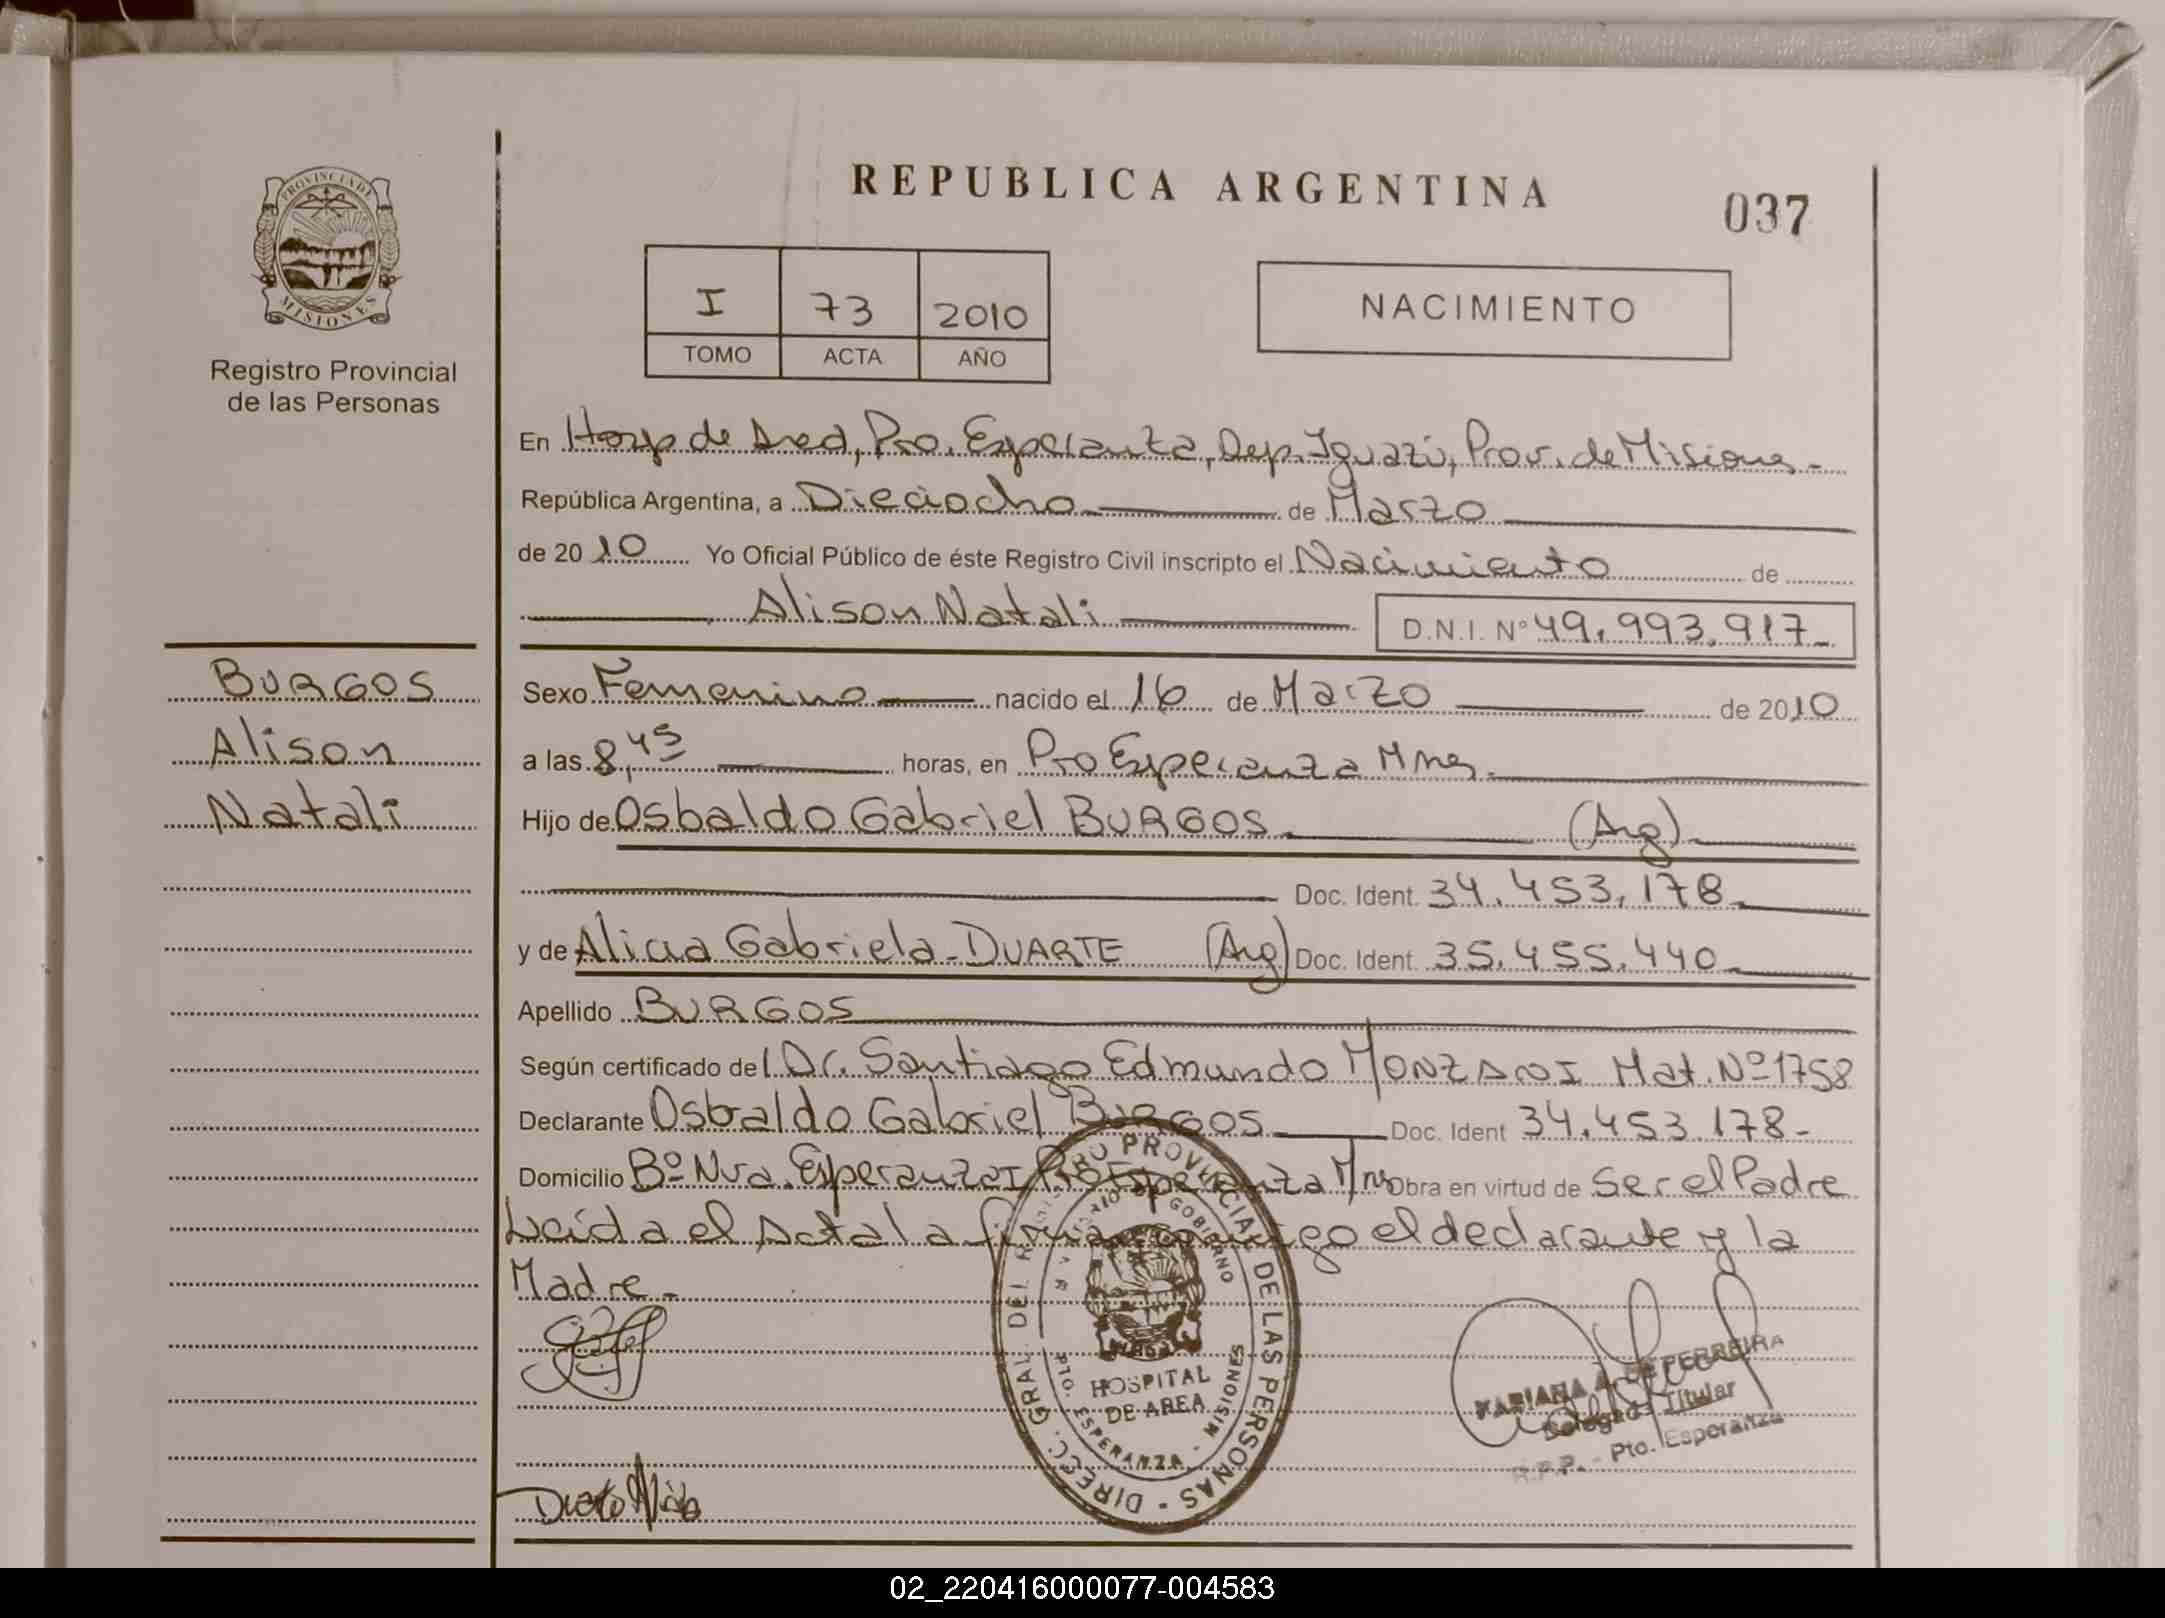 REPUBLICA ARGENTINA
037
PROVINCIA DE
MISIONES
Registro Provincial
de las Personas
I 73 2010
TOMO ACTA AÑO
NACIMIENTO
En Hosp de Area, Pto. Esperanza, Dep. Iguazú, Prov. de Misiones.-
República Argentina, a Dieciocho de Marzo
de 2010 Yo Oficial Público de éste Registro Civil inscripto el Nacimiento de
Alison Natali D.N.I. Nº 49.993.917-
BURGOS
Alison
Natali
Sexo Femenino nacido el 16 de Marzo de 2010
a las 8,45 horas, en Pto Esperanza Mnes.
Hijo de Osbaldo Gabriel BURGOS (Arg)
Doc. Ident. 34.453.178.
y de Alicia Gabriela DUARTE (Arg) Doc. Ident. 35.455.440
Apellido BURGOS
Según certificado del Dr. Santiago Edmundo Mat. Nº 1758
Declarante Osbaldo Gabriel BURGOS Doc. Ident 34.453.178-
Domicilio Bº Nva. Esperanza I Pto Esperanza Mnes Obra en virtud de Ser el Padre
Leída el Acta la firman conmigo el declarante y la
Madre.-
DIRECC. GRAL. DEL REGISTRO PROVINCIAL DE LAS PERSONAS
GOBIERNO
HOSPITAL
DE AREA
PTO. ESPERANZA - MISIONES
MARIANA A. DE FERREIRA
Delegada Titular
R.P.P. - Pto. Esperanza
02_220416000077-004583